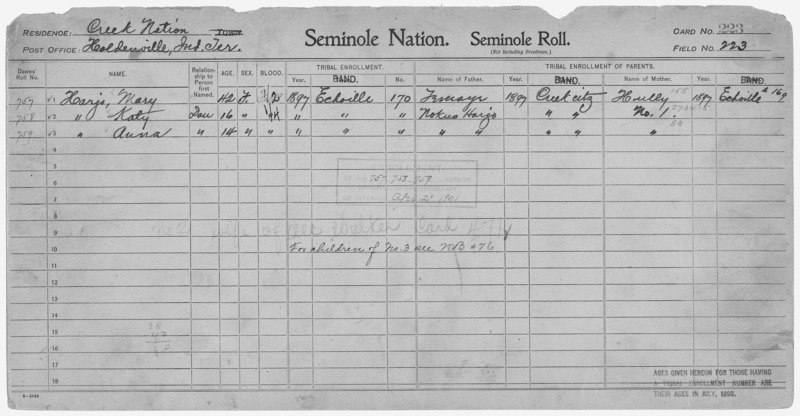 RESIDENCE: Creek Nation TOWN
POST OFFICE: Holdenville, Ind. Ter.
Seminole Nation. Seminole Roll.
(Not Including Freedmen.)
CARD NO. 223
FIELD NO. 223
Dawes' Roll No. NAME. Relationship to Person first Named. AGE. SEX. BLOOD. TRIBAL ENROLLMENT. Year. BAND. No. TRIBAL ENROLLMENT OF PARENTS. Name of Father. Year. BAND. Name of Mother. Year. BAND.
757 1 Harjo, Mary 42 F. 1/2 1897 Echoille 170 1897 Creek citz Hully 1897 Echoille # 169
758 2 " Katy Dau 16 " " " " Nokus Harjo " " No. 1.
759 3 " Anna " 14 " " " " " " " " " "
4
5
6 757 758 759
7 Apr 2 1901
8
9 No 2 wife of Walker Card
10 For children of No. 3 see NB #76
11
12
13
14
15
16
17
18
AGES GIVEN HEREON FOR THOSE HAVING
A TRIBAL ENROLLMENT NUMBER ARE
THEIR AGES IN JULY, 1898.